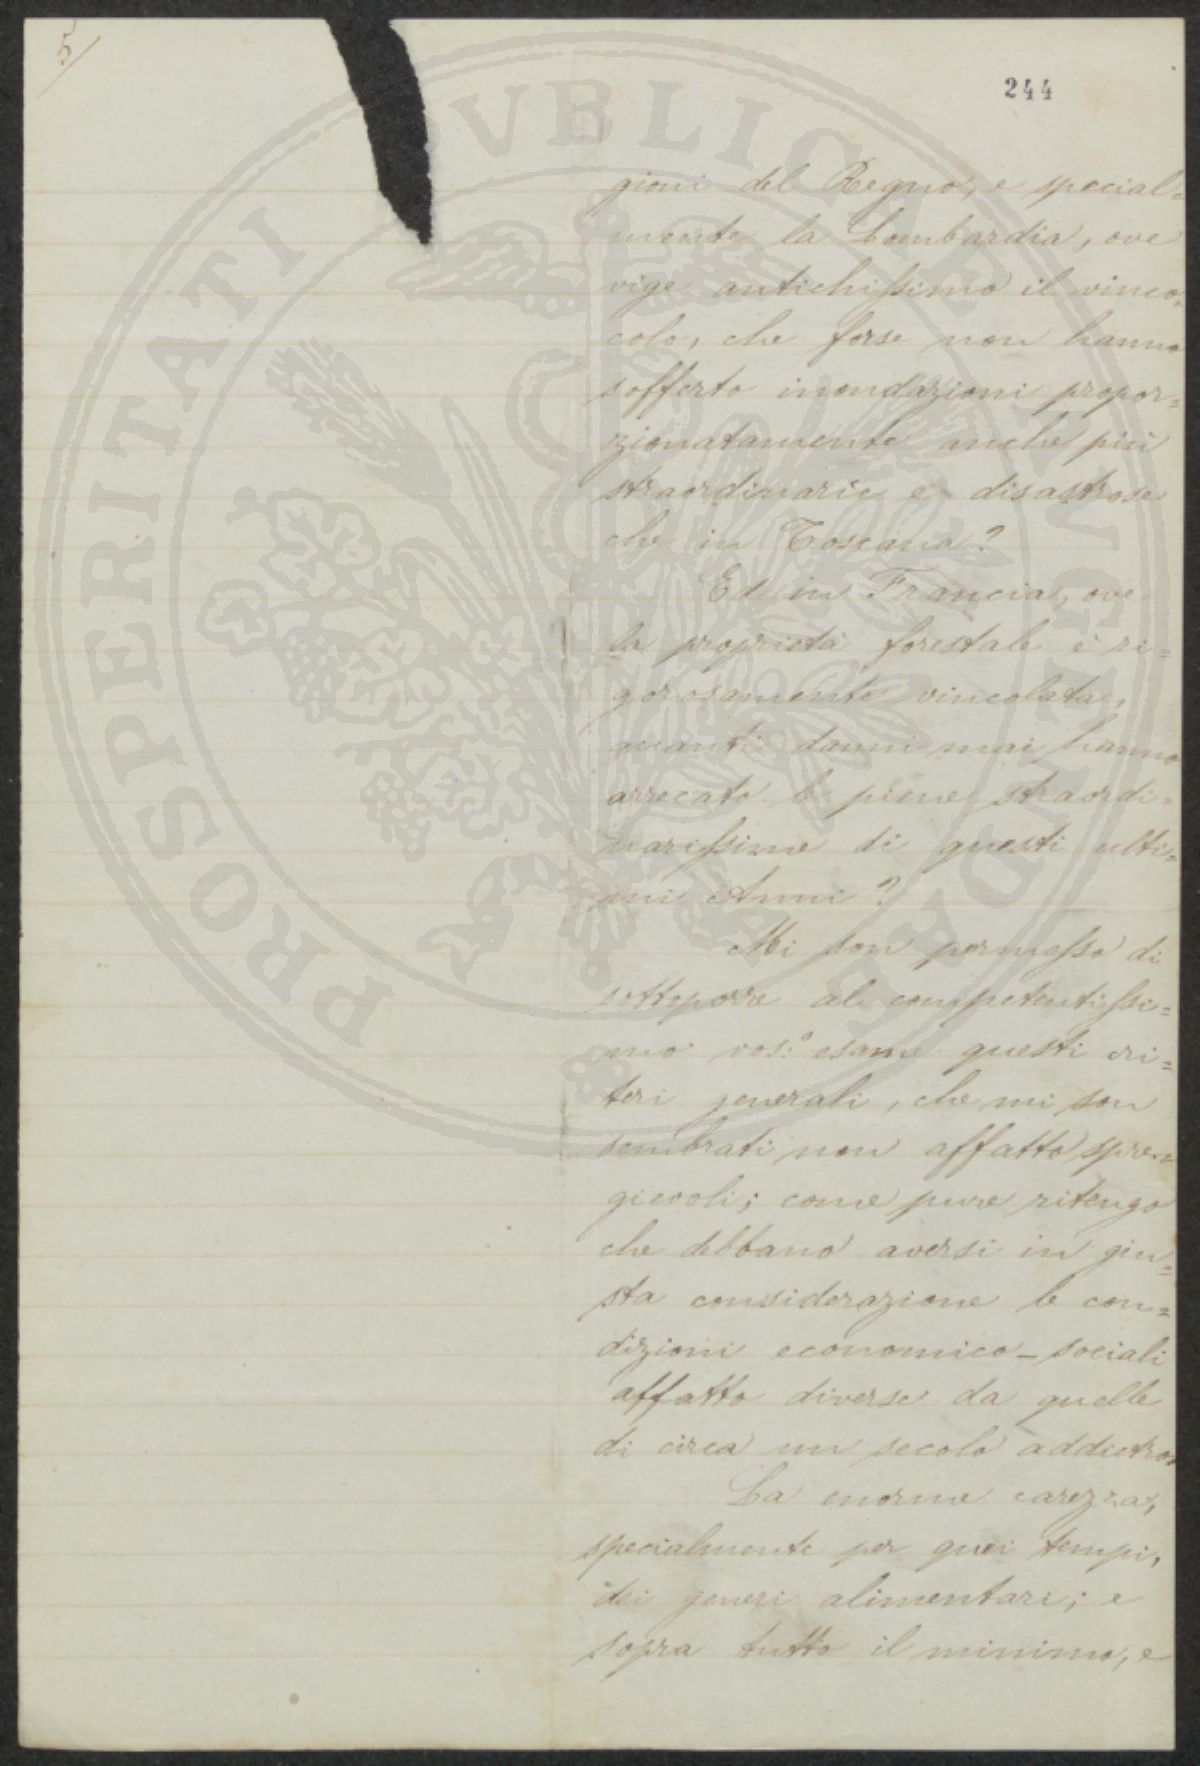 5/
244
gioni del Regno, e special=
mente la Lombardia, ove
vige antichissimo il vinco=
colo, che forse non hanno
sofferto inondazioni propor=
zionatamente anche più
straordinarie e disastrose
che in Toscana?
Ed in Francia, ove
la proprietà forestale è ri=
gorosamente vincolata,
quanti danni mai hanno
arrecato le piene straordi=
narissime di questi ulti=
mi Anni?
Mi son permesso di
sottoporre al competentissi=
mo vos:o esame questi cri=
teri generali, che mi son
sembrati non affatto spre=
gievoli; come pure ritengo
che debbano aversi in giu=
sta considerazione le con=
dizioni economico-sociali
affatto diverse da quelle
di circa un secolo addietro.
La enorme carezza,
specialmente per quei tempi,
dei generi alimentari; e
sopra tutto il minimo, e
PROSPERITATI PVBLICAE AVGENDAE